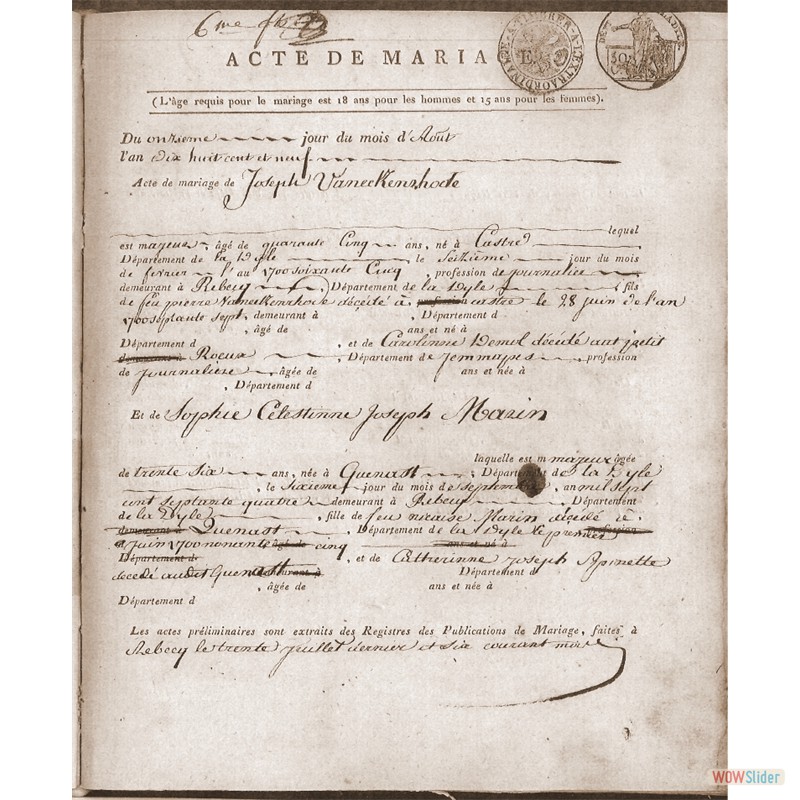 6me
ACTE DE MARIA
(L'âge requis pour le mariage est 18 ans pour les hommes et 15 ans pour les femmes).
Du onzieme jour du mois d'Aout
l'an dix huit cent et neuf
Acte de mariage de Joseph Vaneckenrhode
lequel
est majeur âgé de quarante Cinq ans, né à Castre
Département de la Dyle, le Seizième jour du mois
de fevrier l'an 1700 soixante Cinq, profession de journalier
demeurant à Rebecq, Département de la Dyle, fils
de feu pierre Vaneckenrhode décédé à castre le 28 juin de l'an
1700 septante sept, demeurant à Département d
, âgé de ans et né à
Département d , et de Carolinne Demol décédé aut petit
Roeux, Département de Jemmapes profession
de journaliere âgée de ans et née à
, Département d
Et de Sophie Celestinne Joseph Marin
laquelle est m majeur âgée
de trente Six ans, née à Quenast, Départ de la Dyle
, le Sixieme jour du mois de Septembre, an mil sept
cent septante quatre demeurant à Rebecq Département
de la Dyle, fille de feu nicaise Marin décédé à
Quenast, Département de la Dyle le premier
juin 1700 nonante cinq
, et de Catherinne Joseph Spinette
decedé audit Quenast Département d
âgée de ans et née à
Département d
Les actes préliminaires sont extraits des Registres des Publications de Mariage, faites à
Rebecq le trente juillet dernier et six courant mois
WOWSlider